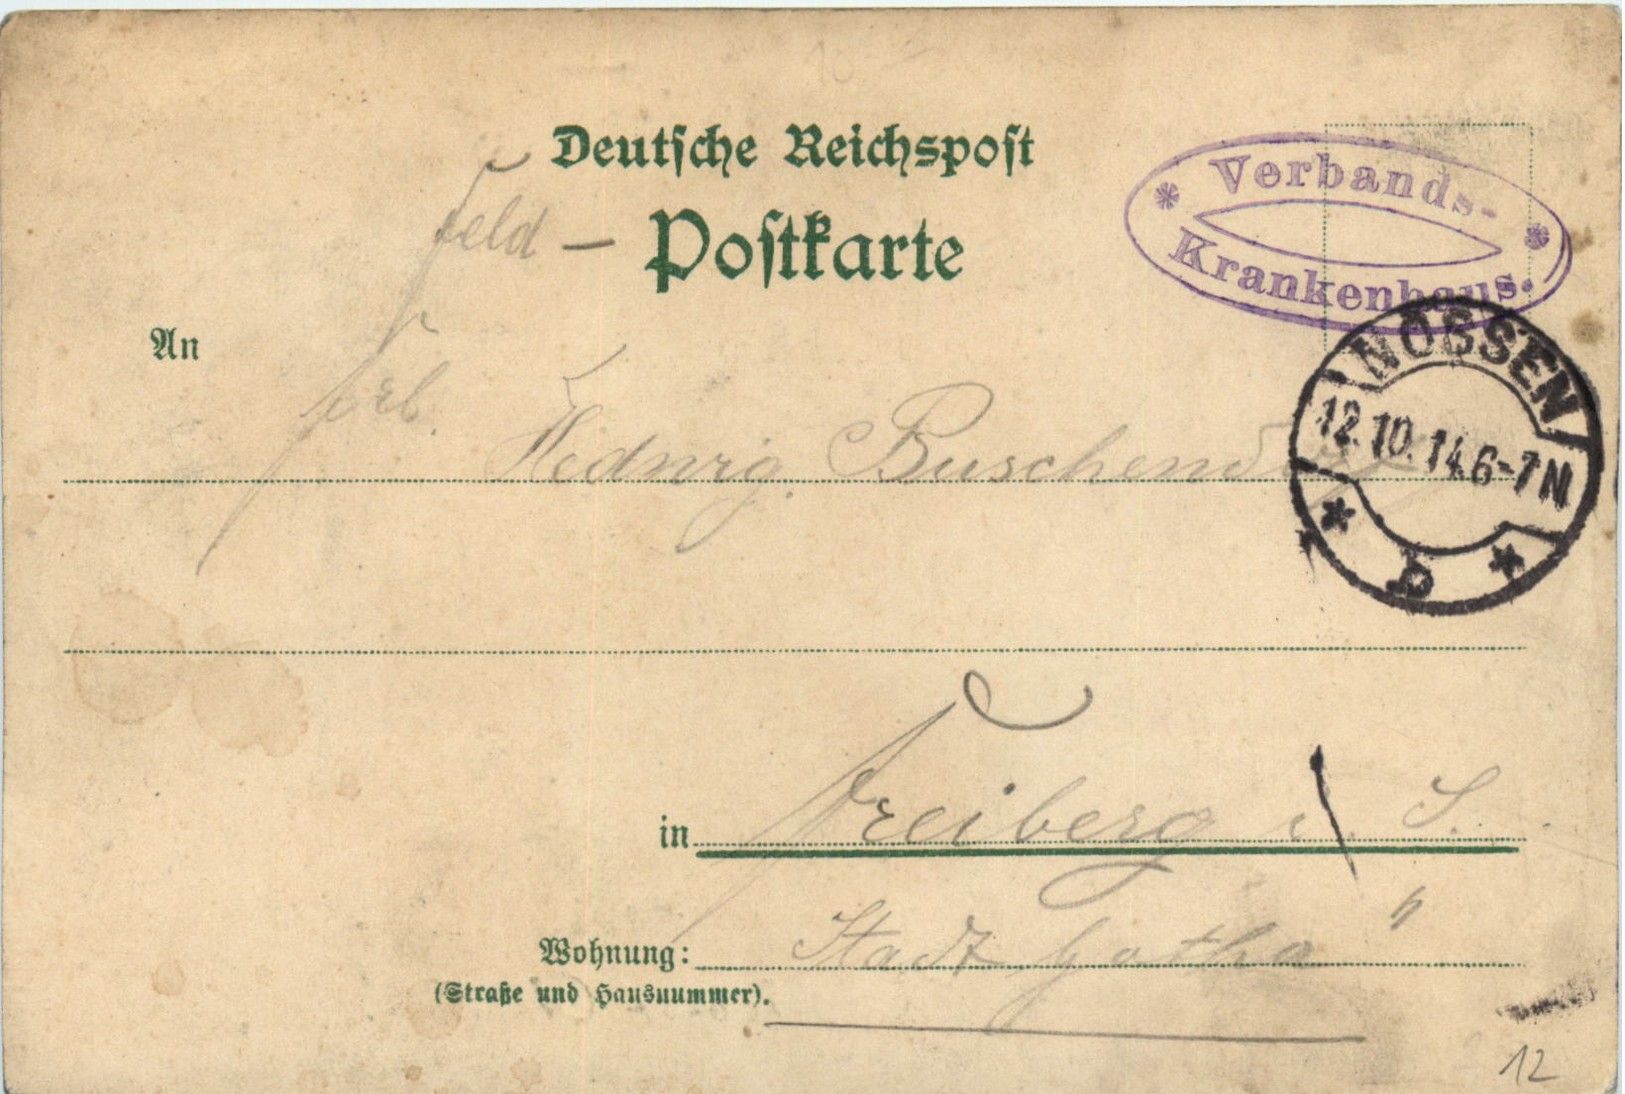 Deutsche Reichspost
Feld – Postkarte
Verbands-
Krankenhaus.
NOSSEN
12.10.14.6-7N
* b *
An
Frl. Hedwig Buschendorf
in Freiberg i. S.
Wohnung: Stadt Gotha "
(Straße und Hausnummer).
12